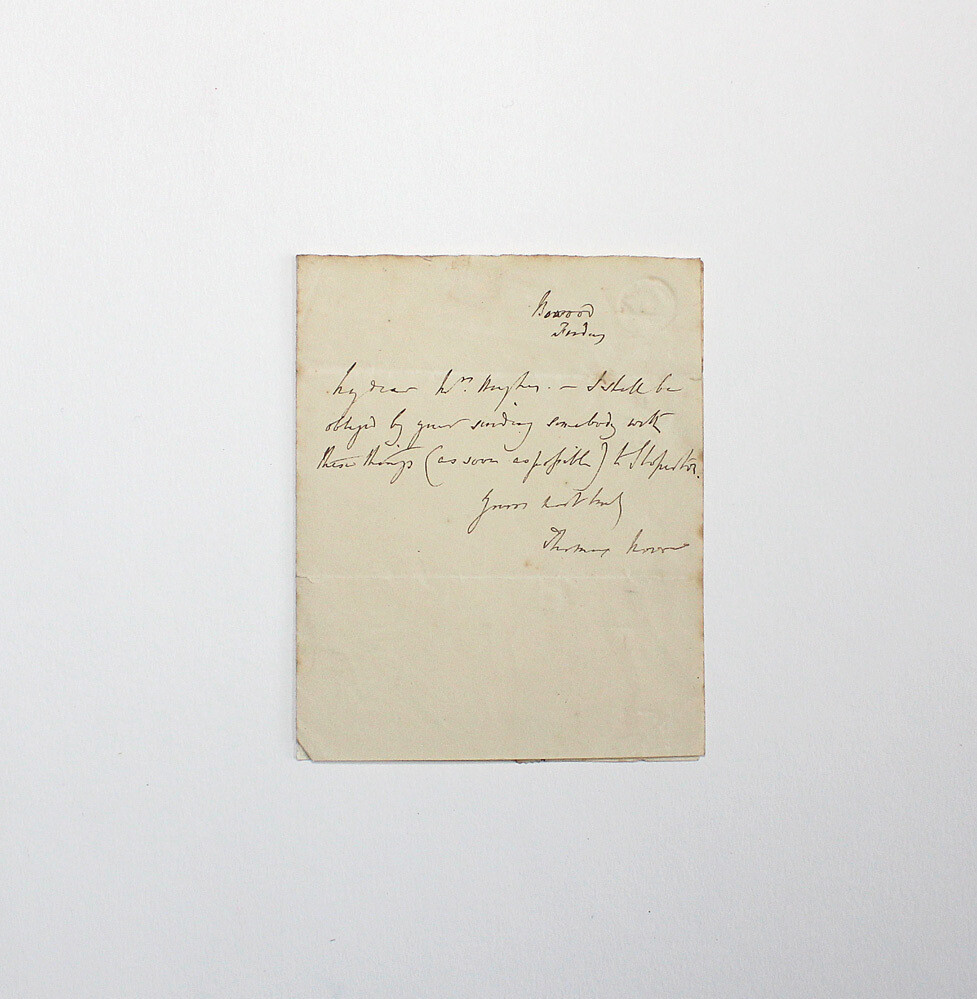 Bowood
My dear Mrs. Hughes. – I shall be
obliged by your sending somebody with
these things (as soon as possible) to Sloperton.
Yours most truly
Thomas Moore